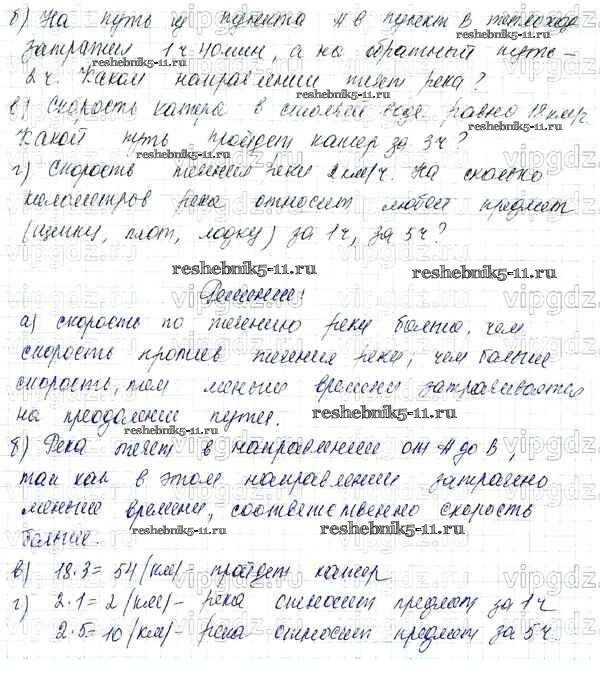 б) На путь из пункта А в пункт В теплоход
затратил 1 ч 40 мин, а на обратный путь –
2 ч. В каком направлении течёт река?
в) Скорость катера в стоячей воде равна 18 км/ч
Какой путь пройдет катер за 3 ч?
г) Скорость течения реки 2 км/ч. На сколько
километров река относит любой предмет
(щепку, плот, лодку) за 1 ч, за 5 ч?
Решение:
а) скорость по течению реки больше, чем
скорость против течения реки, чем больше
скорость, тем меньше времени затрачивается
на преодоление пути.
б) Река течет в направлении от А до В,
так как в этом направлении затрачено
меньше времени, соответственно скорость
больше.
в) 18·3 = 54 (км) – пройдет катер
г) 2·1 = 2 (км) – река относит предмет за 1 ч
2·5 = 10 (км) – река относит предмет за 5 ч.
reshebnik5-11.ru
vipgdz.ru